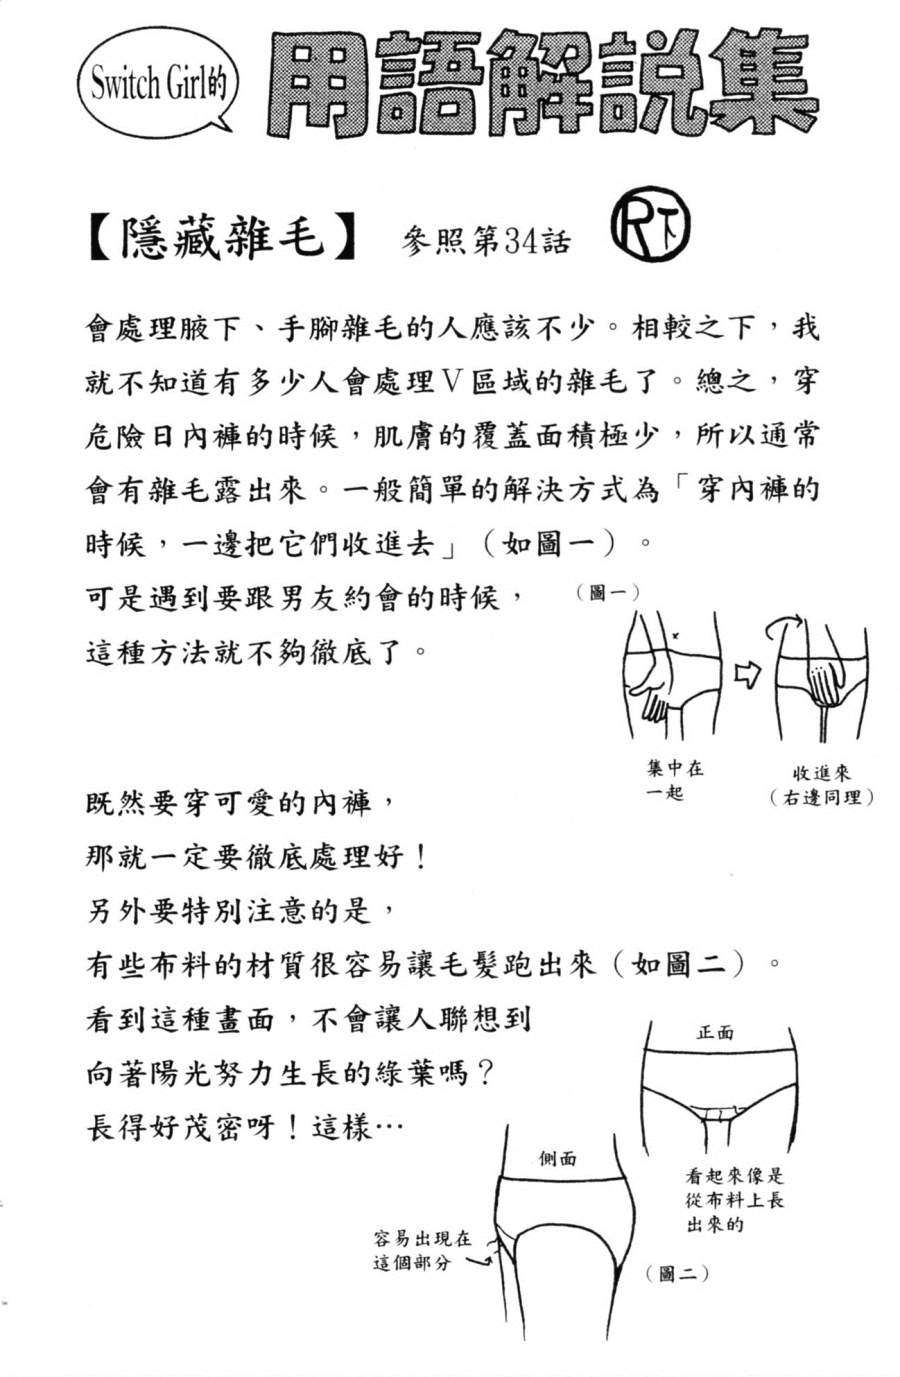 Switch Girl的
用語解説集
【隱藏雜毛】 參照第34話 R下
會處理腋下、手腳雜毛的人應該不少。相較之下，我
就不知道有多少人會處理V區域的雜毛了。總之，穿
危險日內褲的時候，肌膚的覆蓋面積極少，所以通常
會有雜毛露出來。一般簡單的解決方式為「穿內褲的
時候，一邊把它們收進去」（如圖一）。
可是遇到要跟男友約會的時候，
這種方法就不夠徹底了。
（圖一）
集中在
一起
收進來
（右邊同理）
既然要穿可愛的內褲，
那就一定要徹底處理好！
另外要特別注意的是，
有些布料的材質很容易讓毛髮跑出來（如圖二）。
看到這種畫面，不會讓人聯想到
向著陽光努力生長的綠葉嗎？
長得好茂密呀！這樣…
正面
看起來像是
從布料上長
出來的
側面
容易出現在
這個部分
（圖二）